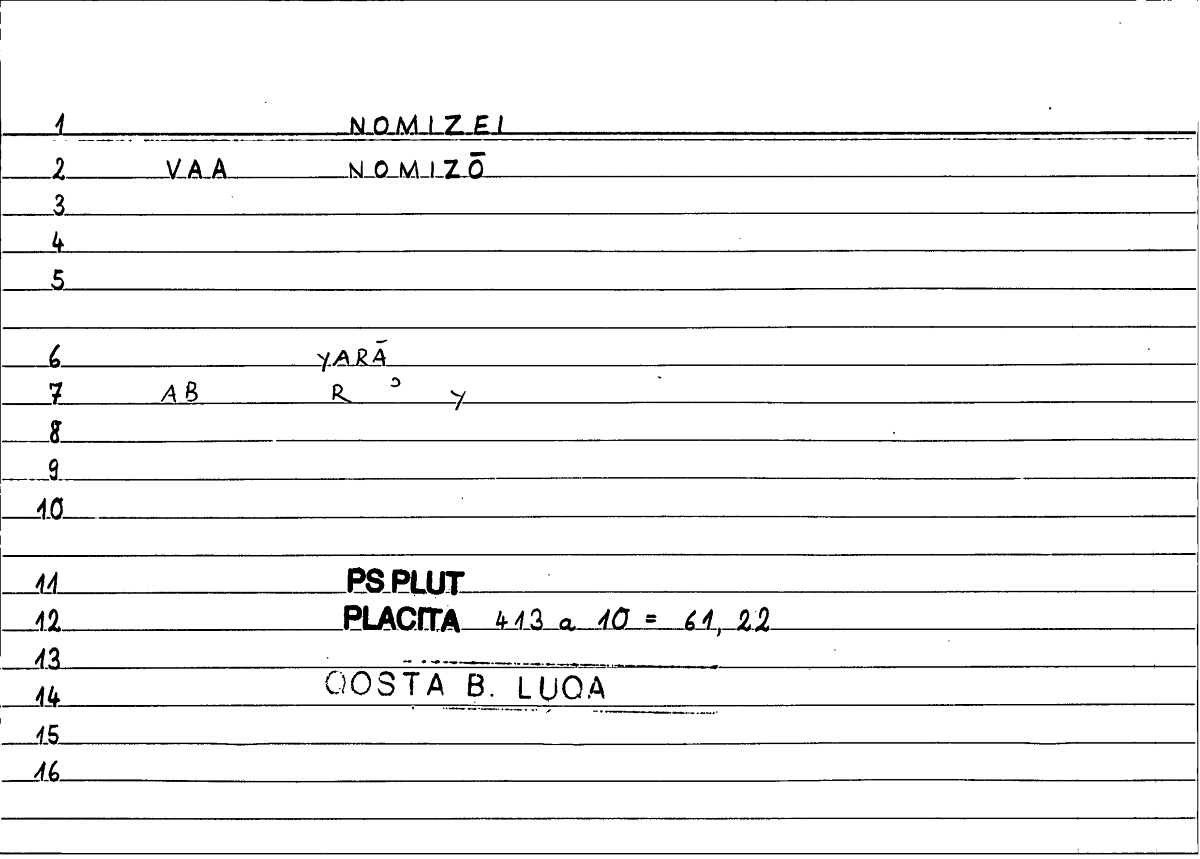 1 NOMIZEI
2 VAA NOMIZŌ
3
4
5
6 YARĀ
7 AB R ʾ Y
8
9
10
11 PS PLUT
12 PLACITA 413 a 10 = 61, 22
13
14 QOSTA B. LUQA
15
16